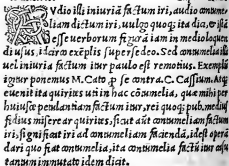 AVdio illi iniuriã factum iri, audio contumeliam dictum iri, uulgo quoq; ita dici,
esse uerborum figurã iam in medio loquendi usu, idcirco exẽplis supersedeo. Sed contumelia illi
uel iniuria factum itur paulo est remotius. Exemplũ
igitur ponemus M. Cato ꝓ se contra. C. Cassium. Atq;
euenit ita quirites uti in hac cõtumelia, quæ mihi per
huiusce petulantiam factum itur, rei quoq; pub. medius
fidius miserear quirites, sicut aũt contumeliam factum
iri, significat iri ad contumeliam faciendã, idest operã
dari quo fiat contumelia, ita contumelia factũ itur casu
tantum inmutato idem dicit.